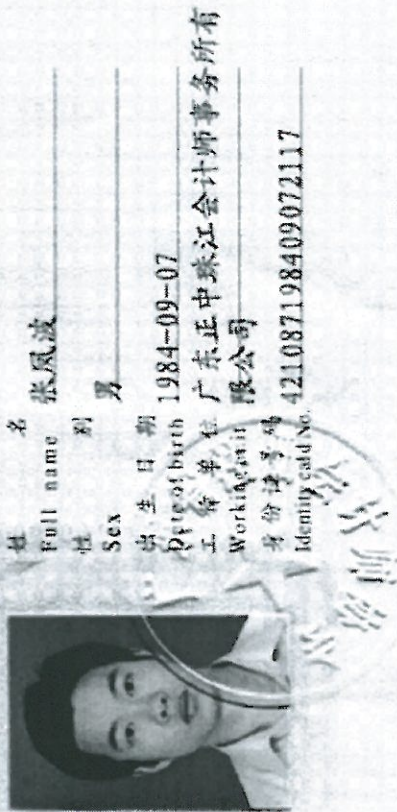 姓 名 张凤波
Full name
性 别 男
Sex
出 生 日 期 1984-09-07
Date of birth
工 作 单 位 广东正中珠江会计师事务所有
限公司
Working unit
身 份 证 号 码 421087198409072117
Identity card No.